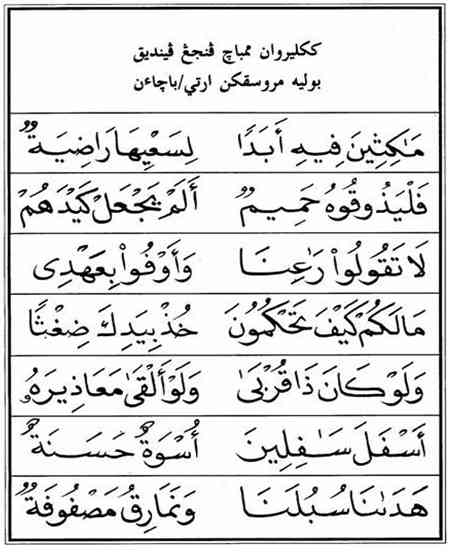 ککليروان ممباچ ڤنجڠ ڤينديق
بوليه مروسقکن ارتي/باچاءن
مَٰكِثِينَ فِيهِ أَبَدًا لِسَعْيِهَا رَاضِيَةٌ
فَلْيَذُوقُوهُ حَمِيمٌ أَلَمْ يَجْعَلْ كَيْدَهُمْ
لَا تَقُولُوا۟ رَٰعِنَا وَأَوْفُوا۟ بِعَهْدِى
مَا لَكُمْ كَيْفَ تَحْكُمُونَ خُذْ بِيَدِكَ ضِغْثًا
وَلَوْ كَانَ ذَا قُرْبَىٰ وَلَوْ أَلْقَىٰ مَعَاذِيرَهُۥ
أَسْفَلَ سَٰفِلِينَ أُسْوَةٌ حَسَنَةٌ
هَدَىٰنَا سُبُلَنَا وَنَمَارِقُ مَصْفُوفَةٌ